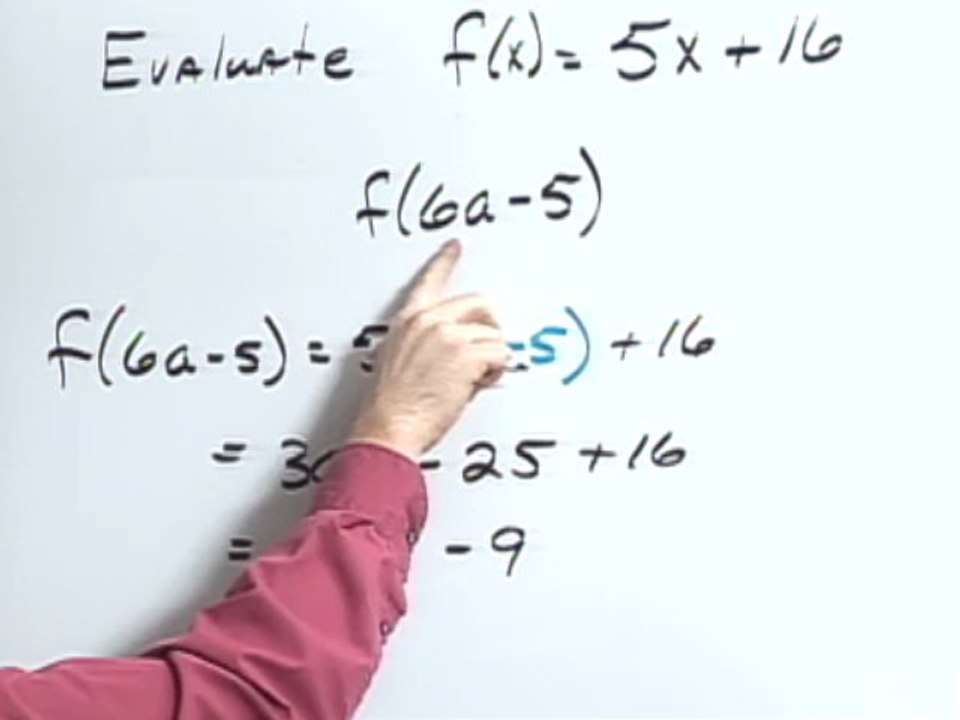 Evaluate f(x) = 5x + 16
f(6a - 5)
f(6a - 5) = 5 -5) + 16
= 3 - 25 + 16
= - 9